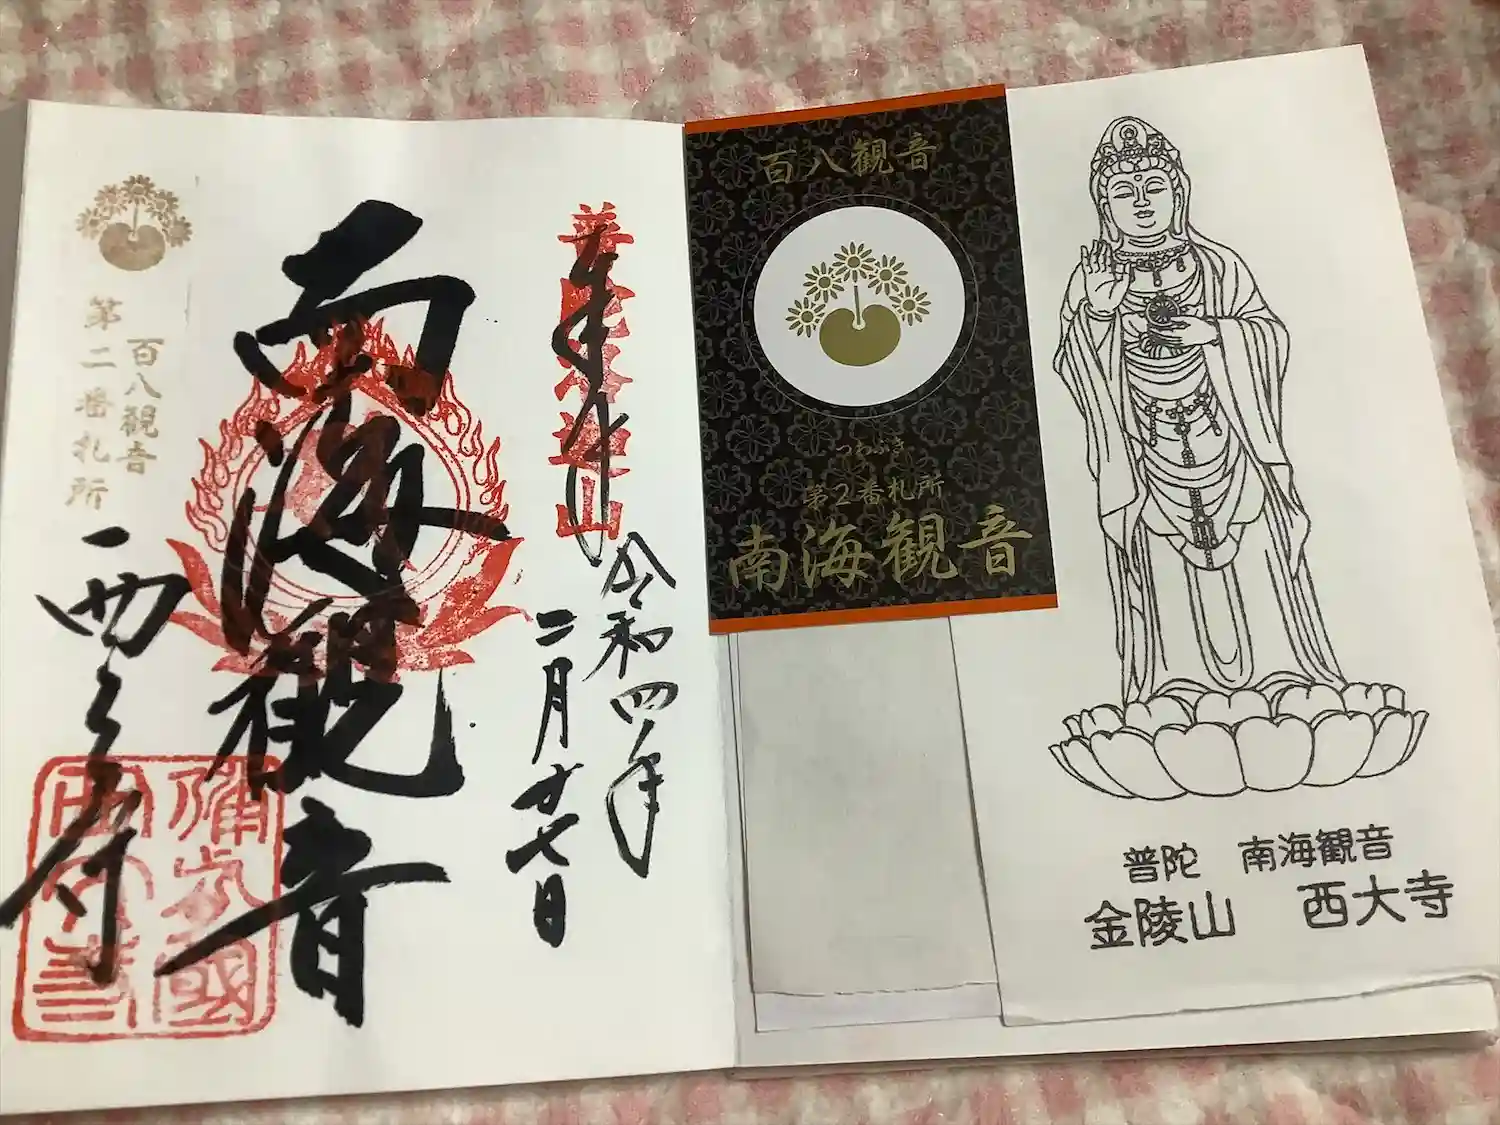 普陀洛迦山
奉拝
令和四年
二月廿七日
南海観音
百八観音
第二番札所
西大寺
百八観音
つわぶき
第2番札所
南海観音
普陀　南海観音
金陵山　西大寺